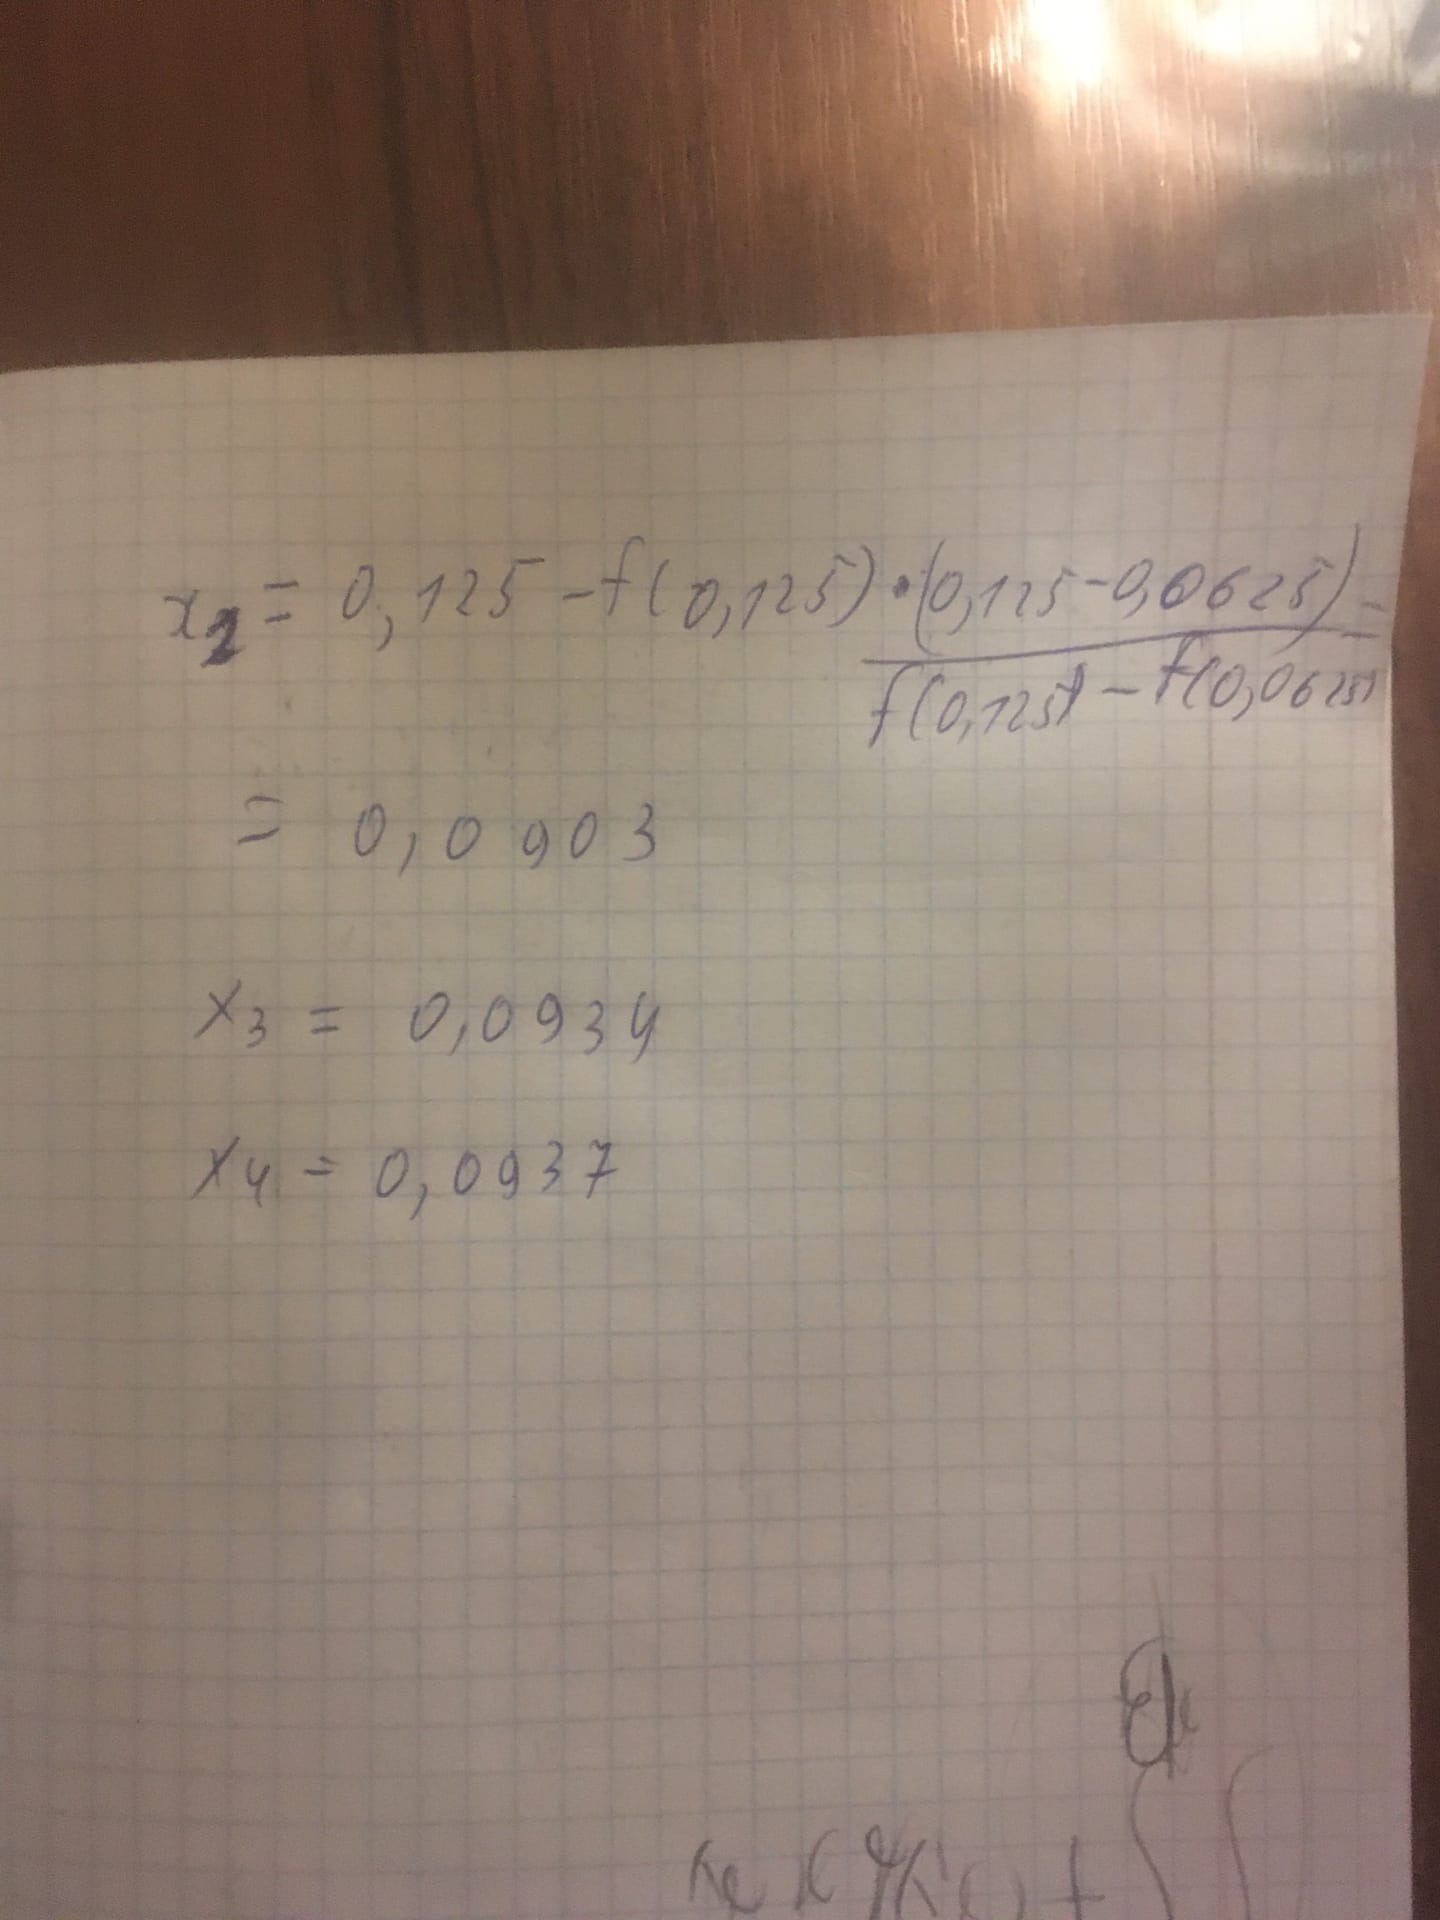 x₂ = 0,125 - f(0,125) · (0,125 - 0,0625) =
f(0,125) - f(0,0625)
= 0,0903
x₃ = 0,0934
x₄ = 0,0937